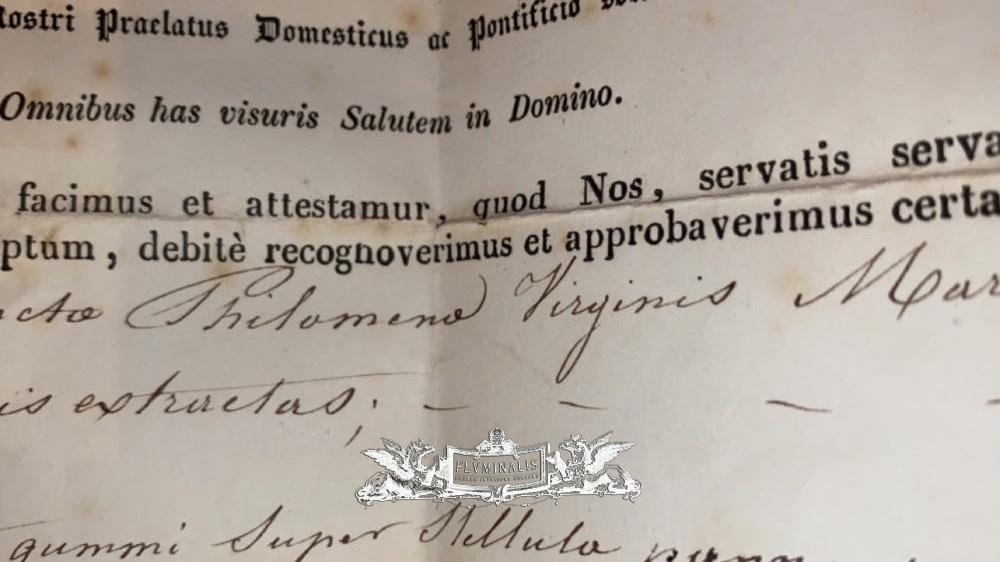 Nostri Praelatus Domesticus ac Pontificio
Omnibus has visuris Salutem in Domino.
facimus et attestamur, quod Nos, servatis serva
ptum, debitè recognoverimus et approbaverimus certa
ctæ Philomenæ Virginis Mar
is extractas;
FLVMINALIS
gummi super Stellula